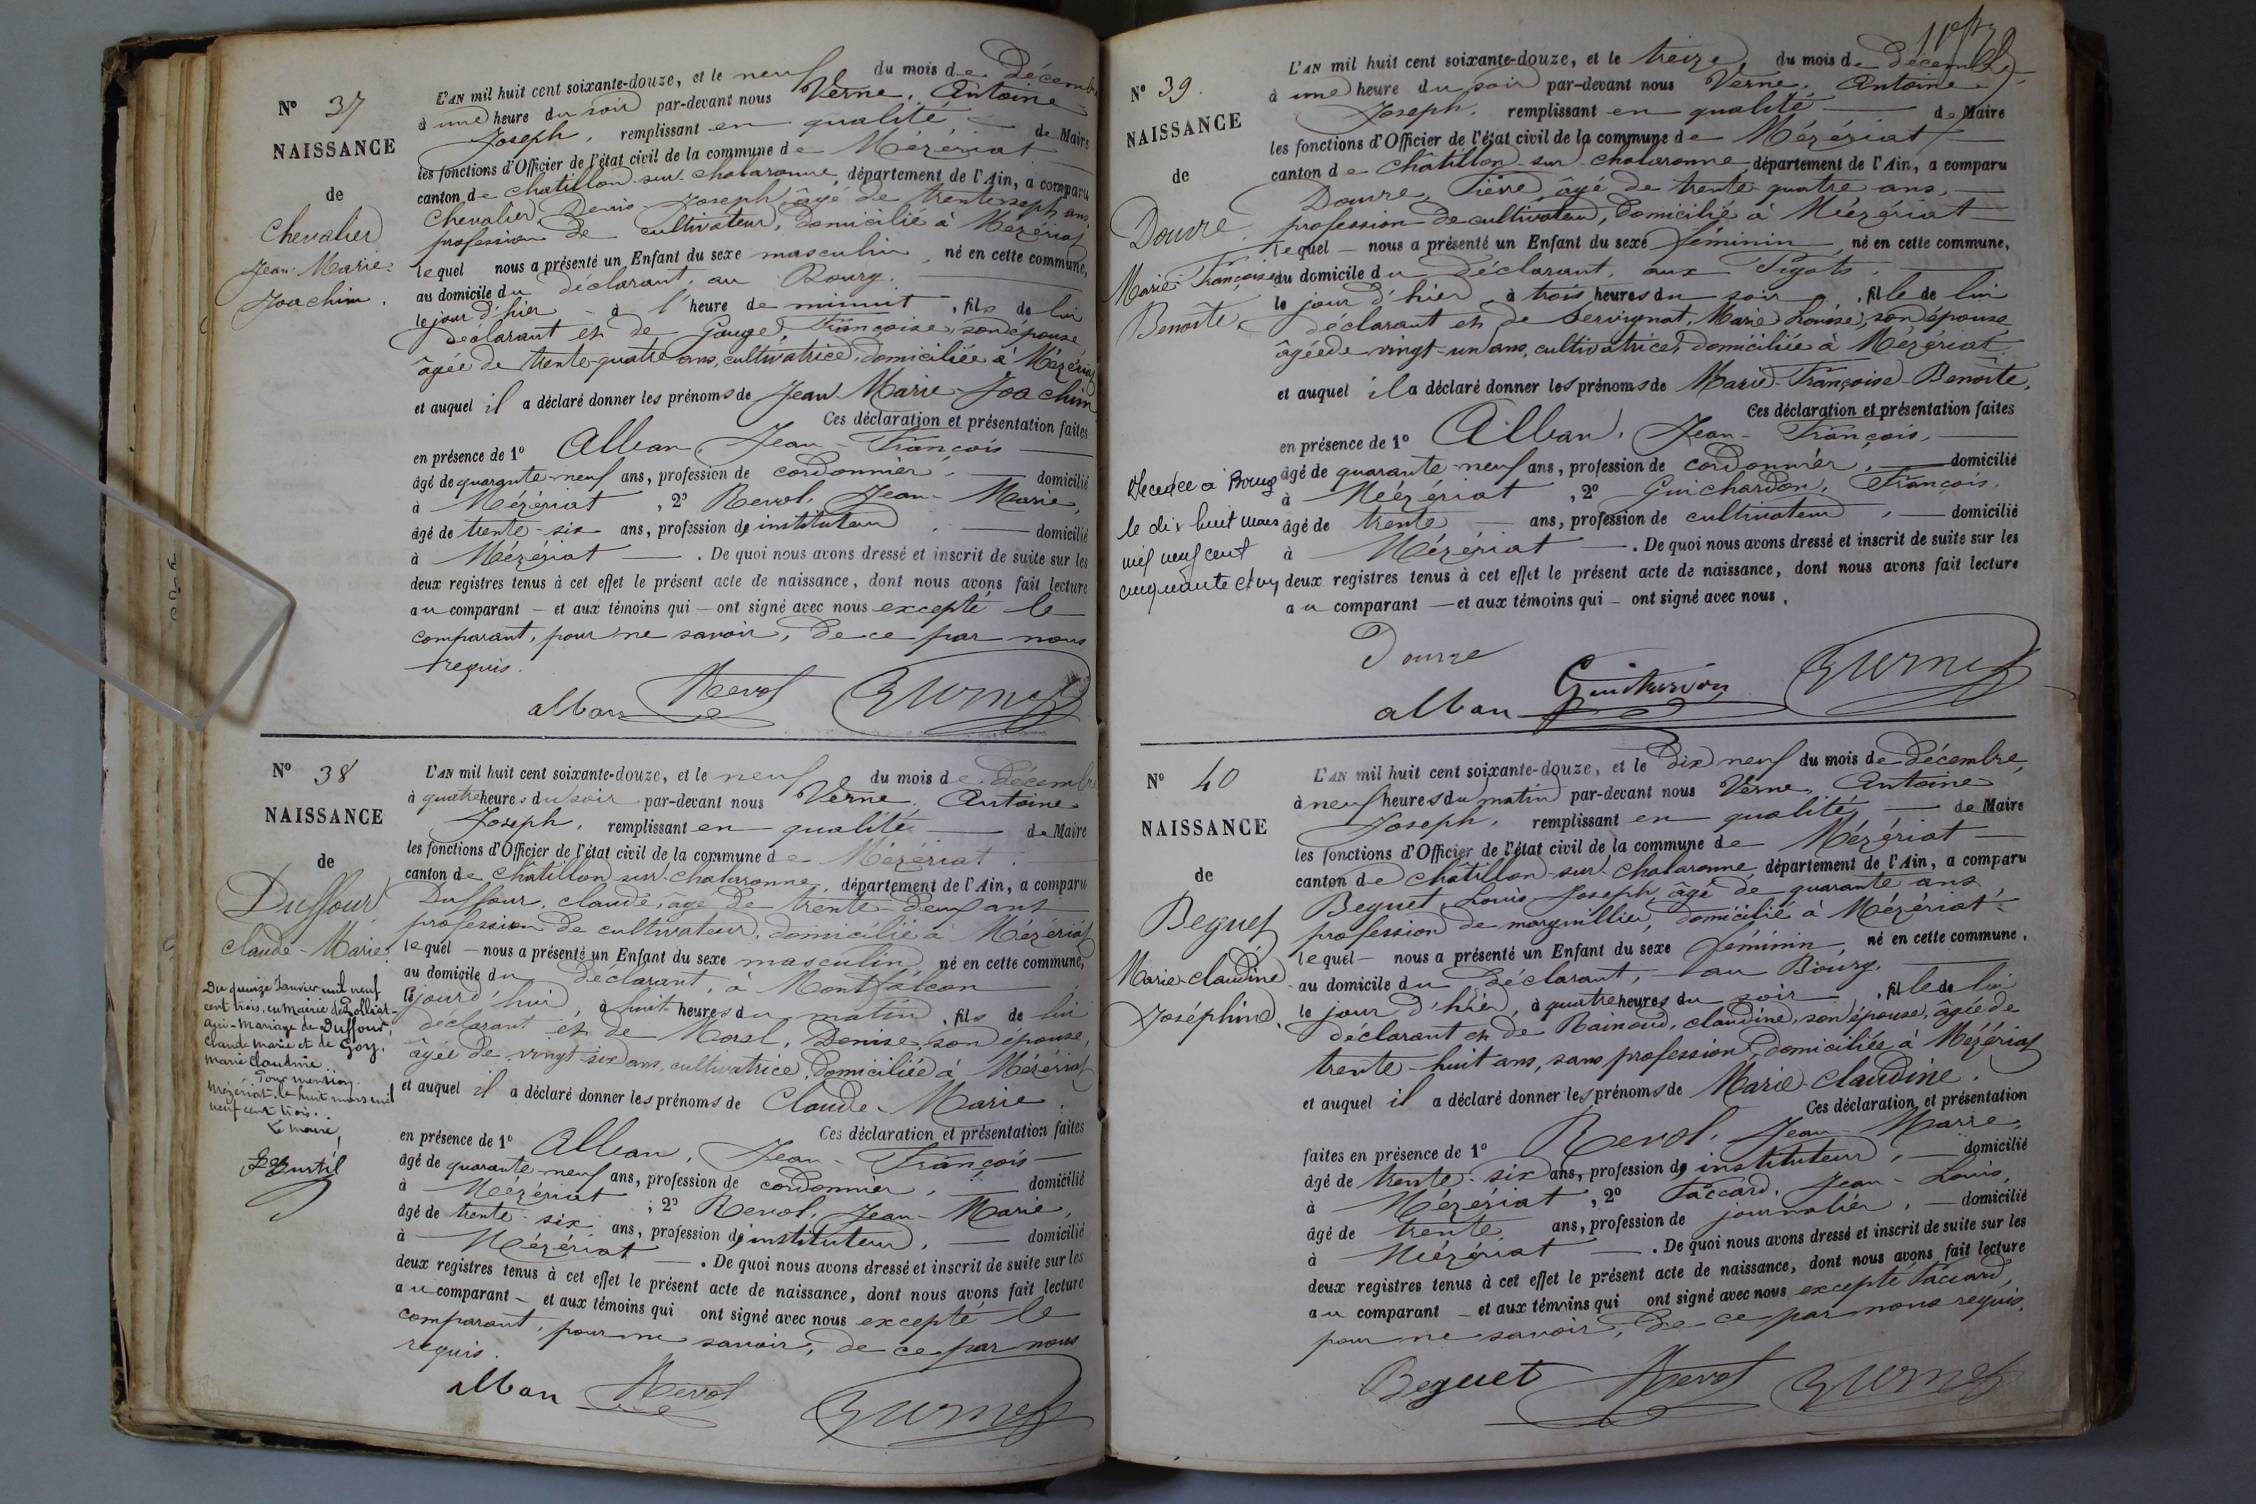 N° 37
NAISSANCE
de
Chevalier
Jean Marie
Joachim.
L'AN mil huit cent soixante-douze, et le neuf du mois de Décembre
à une heure du soir par-devant nous Verne, Antoine
Joseph, remplissant en qualité de Maire
les fonctions d'Officier de l'état civil de la commune de Mézériat
canton de Chatillon sur chalaronne, département de l'Ain, a comparu
Chevalier Denis Joseph, âgé de trente sept ans
profession de cultivateur, domicilié à Mézériat
lequel nous a présenté un Enfant du sexe masculin, né en cette commune,
au domicile du déclarant, au Bourg.
le jour d'hier à l'heure de minuit, fils de lui
déclarant et de Gauge, Françoise, son épouse
âgée de trente-quatre ans, cultivatrice, domiciliée à Mézériat
et auquel il a déclaré donner les prénoms de Jean Marie Joachim
Ces déclaration et présentation faites
en présence de 1° Alban, Jean-François
âgé de quarante-neuf ans, profession de cordonnier, domicilié
à Mézériat, 2° Revol, Jean-Marie,
âgé de trente-six ans, profession de instituteur, domicilié
à Mézériat. De quoi nous avons dressé et inscrit de suite sur les
deux registres tenus à cet effet le présent acte de naissance, dont nous avons fait lecture
au comparant - et aux témoins qui - ont signé avec nous excepté le
comparant, pour ne savoir, de ce par nous
requis.
alban Revol Verne
N° 38
NAISSANCE
de
Duffour
Claude-Marie.
Du quinze Janvier mil neuf
cent trois, en mairie de Polliat
Mariage de Duffour,
Claude Marie et de Goy,
Marie Claudine
Pour mention
Mézériat, le huit mars mil
neuf cent trois.
Le Maire,
L'AN mil huit cent soixante-douze, et le neuf du mois de Décembre
à quatre heures du soir par-devant nous Verne, Antoine
Joseph, remplissant en qualité de Maire
les fonctions d'Officier de l'état civil de la commune de Mézériat.
canton de Châtillon sur chalaronne, département de l'Ain, a comparu
Duffour, claude, âgé de trente-deux ans
profession de cultivateur, domicilié à Mézériat
lequel - nous a présenté un Enfant du sexe masculin, né en cette commune,
au domicile du déclarant, à Montfalcon
le jourd'hui, à huit heures du matin, fils de lui
déclarant et de Morel, Denise, son épouse,
âgée de vingt-six ans, cultivatrice, domiciliée à Mézériat
et auquel il a déclaré donner les prénoms de Claude-Marie.
Ces déclaration et présentation faites
en présence de 1° Alban, Jean-François
âgé de quarante-neuf ans, profession de cordonnier, domicilié
à Mézériat; 2° Revol, Jean-Marie,
âgé de trente-six ans, profession d'instituteur, domicilié
à Mézériat. De quoi nous avons dressé et inscrit de suite sur les
deux registres tenus à cet effet le présent acte de naissance, dont nous avons fait lecture
au comparant - et aux témoins qui ont signé avec nous excepté le
comparant, pour ne savoir, de ce par nous
requis.
alban Revol Verne
N° 39.
NAISSANCE
de
Douvre
Marie-Françoise
Benoîte
Décédée à Bourg
le dix huit mars
mil neuf cent
cinquante cinq
L'AN mil huit cent soixante-douze, et le treize du mois de décembre
à une heure du soir par-devant nous Verne, Antoine
Joseph, remplissant en qualité de Maire
les fonctions d'Officier de l'état civil de la commune de Mézériat
canton de Châtillon-sur-chalaronne, département de l'Ain, a comparu
Douvre, Pierre, âgé de trente-quatre ans,
profession de cultivateur, domicilié à Mézériat
lequel - nous a présenté un Enfant du sexe féminin, né en cette commune,
au domicile du déclarant, aux Pigots.
le jour d'hier, à trois heures du soir, fille de lui
déclarant et de Servignat, Marie Louise, son épouse
âgée de vingt-un ans, cultivatrice, domiciliée à Mézériat.
et auquel il a déclaré donner les prénoms de Marie-Françoise-Benoîte.
Ces déclaration et présentation faites
en présence de 1° Alban, Jean-François,
âgé de quarante-neuf ans, profession de cordonnier, domicilié
à Mézériat, 2° Guichardon, François,
âgé de trente ans, profession de cultivateur, domicilié
à Mézériat. De quoi nous avons dressé et inscrit de suite sur les
deux registres tenus à cet effet le présent acte de naissance, dont nous avons fait lecture
au comparant - et aux témoins qui - ont signé avec nous.
Douvre
alban Guichardon Verne
N° 40
NAISSANCE
de
Beguet
Marie-claudine
Joséphine.
L'AN mil huit cent soixante-douze, et le dix neuf du mois de décembre,
à neuf heures du matin par-devant nous Verne, Antoine
Joseph, remplissant en qualité de Maire
les fonctions d'Officier de l'état civil de la commune de Mézériat
canton de Châtillon-sur-chalaronne, département de l'Ain, a comparu
Beguet, Louis Joseph, âgé de quarante ans,
profession de marguillier, domicilié à Mézériat
lequel - nous a présenté un Enfant du sexe féminin, né en cette commune,
au domicile du déclarant, au Bourg.
le jour d'hier, à quatre heures du soir, fille de lui
déclarant et de Rainaud, claudine, son épouse, âgée de
trente-huit ans, sans profession, domiciliée à Mézériat
et auquel il a déclaré donner les prénoms de Marie claudine.
Ces déclaration et présentation
faites en présence de 1° Revol, Jean-Marie,
âgé de trente-six ans, profession de instituteur, domicilié
à Mézériat, 2° Paccard, Jean-Louis,
âgé de trente ans, profession de journalier, domicilié
à Mézériat. De quoi nous avons dressé et inscrit de suite sur les
deux registres tenus à cet effet le présent acte de naissance, dont nous avons fait lecture
au comparant - et aux témoins qui ont signé avec nous excepté Paccard,
pour ne savoir, de ce par nous requis.
Beguet Revol Verne